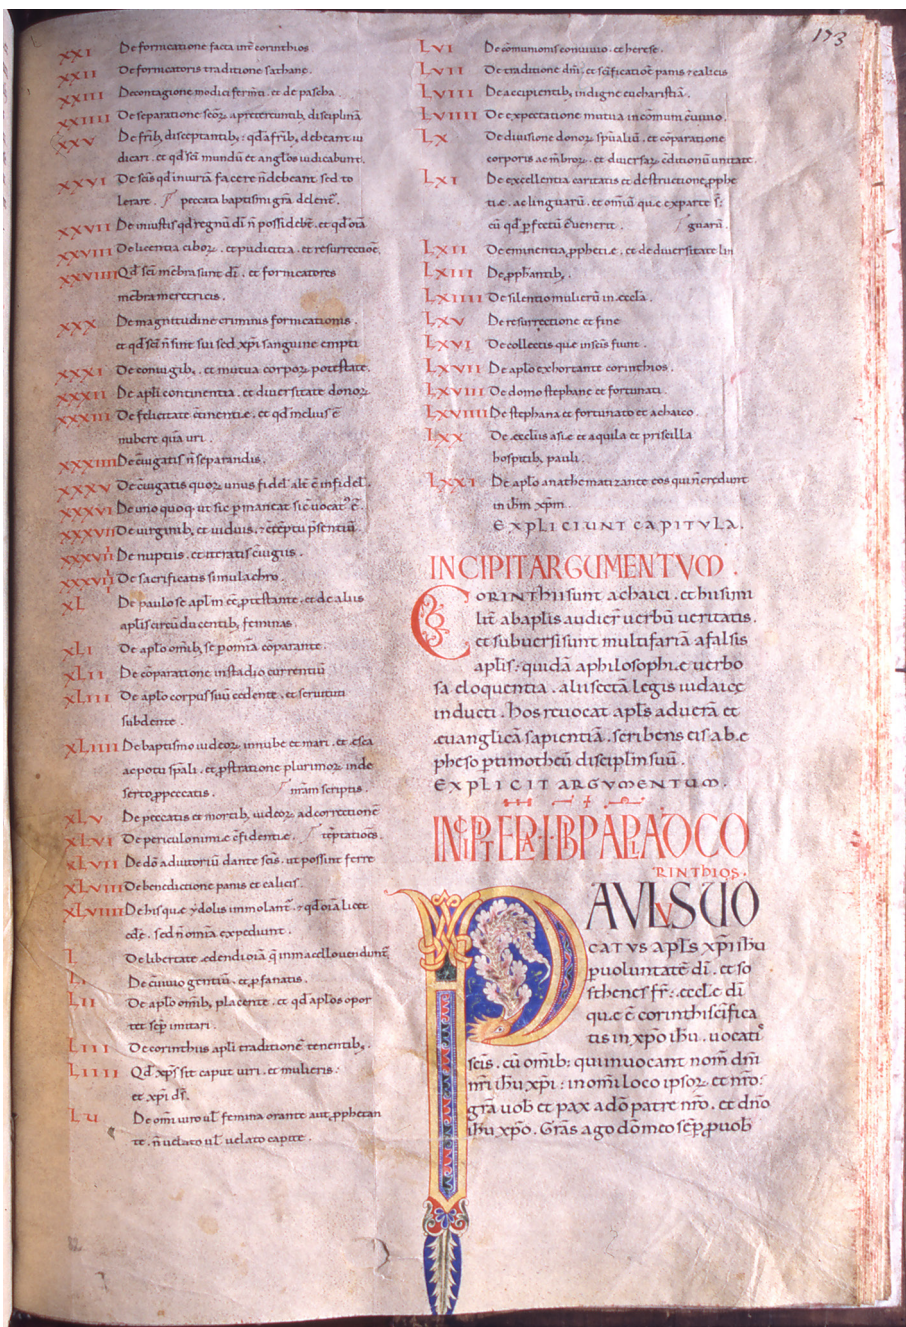 173
XXI De fornicatione facta int̄ corinthios
XXII De fornicatoris traditione sathane.
XXIII De contagione modici ferm̄ti. et de pascha.
XXIIII De separatione sc̄oꝝ a preteruntib; disciplinā
XXV De fr̄ib; disceptantib; qd̄ a fr̄ib; debeant iu
dicari. et qd̄ sc̄i mundū et angl̄os iudicabunt.
XXVI De sc̄is qd̄ iniuriā facere n̄ debeant sed to
lerare. peccata baptismi grā delent̄.
XXVII De iniustis qd̄ regnū dī n̄ possidebt̄. et qd̄ oīa
XXVIII De licentia ciboꝝ. et pudicitia. et resurrectioē.
XXVIIII Qd̄ sc̄i mēbra sunt dī. et fornicatores
mēbra meretricis.
XXX De magnitudine criminis fornicationis.
et qd̄ sc̄i n̄ sint sui sed xp̄i sanguine empti
XXXI De coniugib;. et mutua corpoꝝ potestate.
XXXII De apl̄i continentia. et diuersitate donoꝝ
XXXIII De felicitate c̄tinentię. et qd̄ meliuſ ē
nubere quā uri.
XXXIIII De c̄iugatis n̄ separandis.
XXXV De c̄iugatis quoꝝ unus fidel̄ alt̄ ē infidel̄.
XXXVI De uno quoq; ut sic p̄maneat sic̄ uocat᷒ ē.
XXXVII De uirginib; et uiduis. ⁊ c̄teptu p̄sentiū.
XXXVIII De nuptiis. et iteratis c̄iugiis.
XXXVIIII De sacrificatis simulachro.
XL De paulo se apl̄m eē ptestante. et de aliis
apl̄is circūducentib; feminas.
XLI De apl̄o omīb; se p omīa cōparante.
XLII De cōparatione in stadio currentiū
XLIII De apl̄o corpus suū cedente. et seruituti
subdente.
XLIIII De baptismo iudeoꝝ in nube et mari. et esca
ac potu sp̄ali. et pstratione plurimoꝝ in de
serto p peccatis. nr̄am scriptis.
XLV De peccatis et mortib; iudeoꝝ ad correctionē
XLVI De periculo nimię c̄fidentię. tēptatiōēs.
XLVII De dō adiutoriū dante sc̄is. ut possint ferre
XLVIII De benedictione panis et calicis.
XLVIIII De his quę ydolis immolant̄. ⁊ qd̄ oīa licet
edē. sed n̄ omīa expediunt.
L De libertate edendi oīā q̄ in macello uendunt̄
LI De c̄uiuio gentiū. et p̱fanatis.
LII De apl̄o omīb; placente. et qd̄ apl̄os opor
tet semp̄ imitari.
LIII De corinthiis apl̄i traditionē tenentib;.
LIIII Qd̄ xp̄s sit caput uiri. et mulieris:
et xp̄i dī.
LV De omī uiro ul̄ femina orante aut p̱phetan
te. n̄ uelato ul̄ uelato capite.
LVI De cōmunionis conuiuio. et herese.
LVII De traditione dn̄i. et sc̄ificatioē panis ⁊ calicis
LVIII De accipientib; indigne eucharistiā.
LVIIII De expectatione mutua in cōmuni c̄uiuio.
LX De diuisione donoꝝ sp̄ualiū. et cōparatione
corporis ac m̄broꝝ. et diuersaꝝ c̄ditionū unitate.
LXI De excellentia caritatis et destructione p̱phe
tiæ. ac linguarū. et omīū quæ ex parte s̄:
cū qd̄ p̱fectū ē uenerit. guarū.
LXII De eminentia p̱phetiæ. et de diuersitate lin
LXIII De p̱phantib;.
LXIIII De silentio mulierū in æccl̄a.
LXV De resurrectione et fine
LXVI De collectis quæ in sc̄is fiunt.
LXVII De apl̄o exhortante corinthios.
LXVIII De domo stephanę et fortunati.
LXVIIII De stephana et fortunato et achaico.
LXX De æccl̄iis asiæ et aquila et priscilla
hospitib; pauli.
LXXI De apl̄o anathematizante eos qui n̄ credunt
in ih̄m xp̄m.
EXPLICIUNT CAPITULA.
INCIPIT ARGUMENTUM.
CORINTHII sunt achaici. et hi simi
lit̄ ab apl̄is audier̄ uerbū ueritatis.
et subuersi sunt multifariā a falsis
apl̄is: quidā a philosophiæ uerbo
sa eloquentia. alii secta legis iudaicę
inducti. hos reuocat apl̄s ad uerā et
æuanglicā sapientiā. scribens eis ab e
pheso p timotheū disciplin suū.
EXPLICIT ARGUMENTUM.
INCIPIT EPLA I BI PAULI AD CO
RINTHIOS.
PAULUS UO
CATUS apl̄s xp̄i ih̄u
p uoluntatē dī. et so
sthenes fr̄: æccl̄e dī
quæ ē corinthi sc̄ifica
tis in xp̄o ih̄u. uocati᷒
sc̄is. cū omīb: qui inuocant nom̄ dn̄i
nr̄i ih̄u xp̄i: in omī loco ipsoꝝ et nr̄o:
grā uob̄ et pax a dō patre nr̄o. et dn̄o
ih̄u xp̄o. Grās ago dō meo semp̄ p̱ uob̄